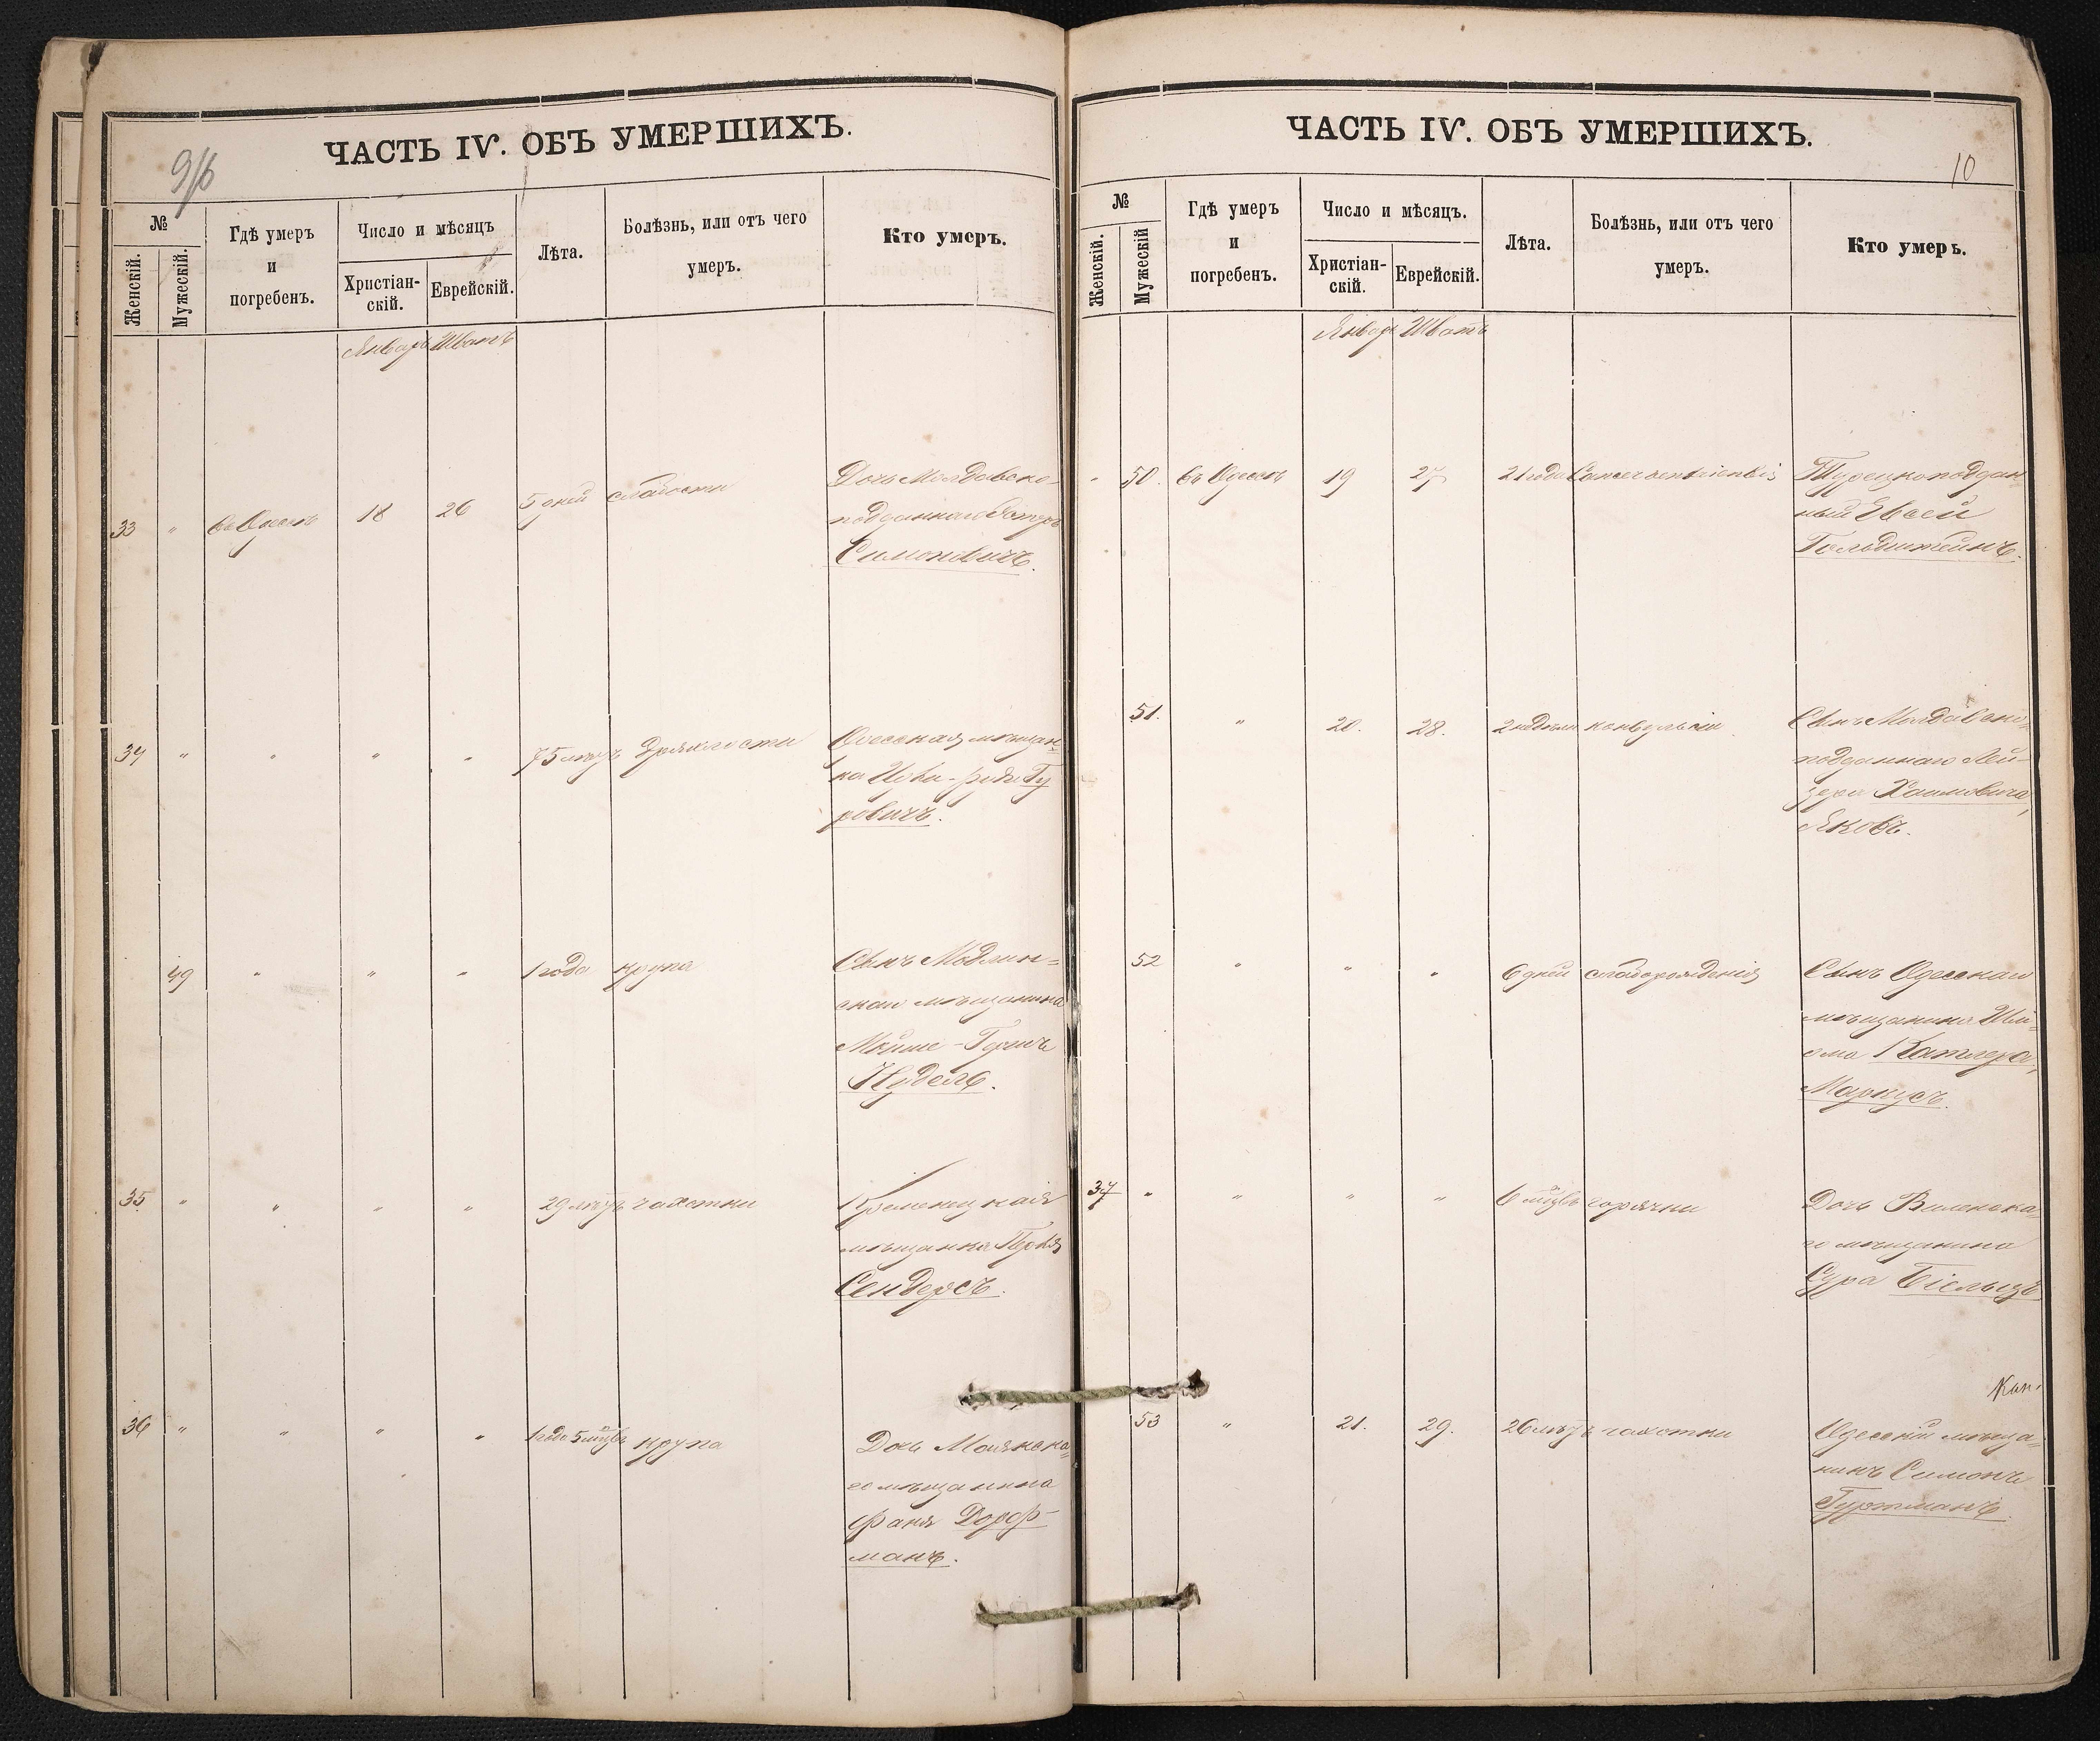 ЧАСТЬ IV. ОБЪ УМЕРШИХЪ.
№
Женскій.
Мужескій.
Гдѣ умеръ
и
погребенъ.
Число и мѣсяцъ
Христіан-
скій.
Еврейскій.
Лѣта.
Болѣзнь, или отъ чего
умеръ.
Кто умеръ.
Январь Шватъ
33 " въ Одессѣ 18 26 5 дней слабости
Дочь Молдавско-
подданнаго Эстеръ
Симоновичъ.
34 " " " " 75 лѣтъ дряхлости
Одесская мѣщан-
ка Гу
ровичъ.
49 " " " 1 года крупа
Сынъ
скаго мѣщанина
Мойше-Гершъ
Нудель.
35 " " " " 29 лѣтъ чахотки
Кременецкая
мѣщанка Перля
Сендерсъ.
36 " " " " 1 года 5 мѣсц. крупа
Дочь Маякска-
го мѣщанина
Фаня Дорф-
манъ.
ЧАСТЬ IV. ОБЪ УМЕРШИХЪ.
10
№
Женскій.
Мужескій
Гдѣ умеръ
и
погребенъ.
Число и мѣсяцъ.
Христіан-
скій.
Еврейскій.
Лѣта.
Болѣзнь, или отъ чего
умеръ.
Кто умеръ.
Январь Шватъ
" 50. въ Одессѣ 19 27 21 года Cancer ventrienlis
Турецкоподдан-
ный Евсей
Гольдштейнъ.
51. " 20. 28. 2 недѣли конвульсіи
Сынъ Молдавско-
подданнаго Лей-
зера Хаимовича,
Яковъ.
52 " " " 6 дней слаборожденія
Сынъ Одесскаго
мѣщанина Шлі-
ома Котлера,
Маркусъ.
37 " " " " 6 мѣсц. горячки
Дочь Виленска-
го мѣщанина
Сура Бѣльцъ.
53 " 21. 29. 26 лѣтъ чахотки
Одесскій мѣща-
нинъ Симонъ
Гуртманъ.